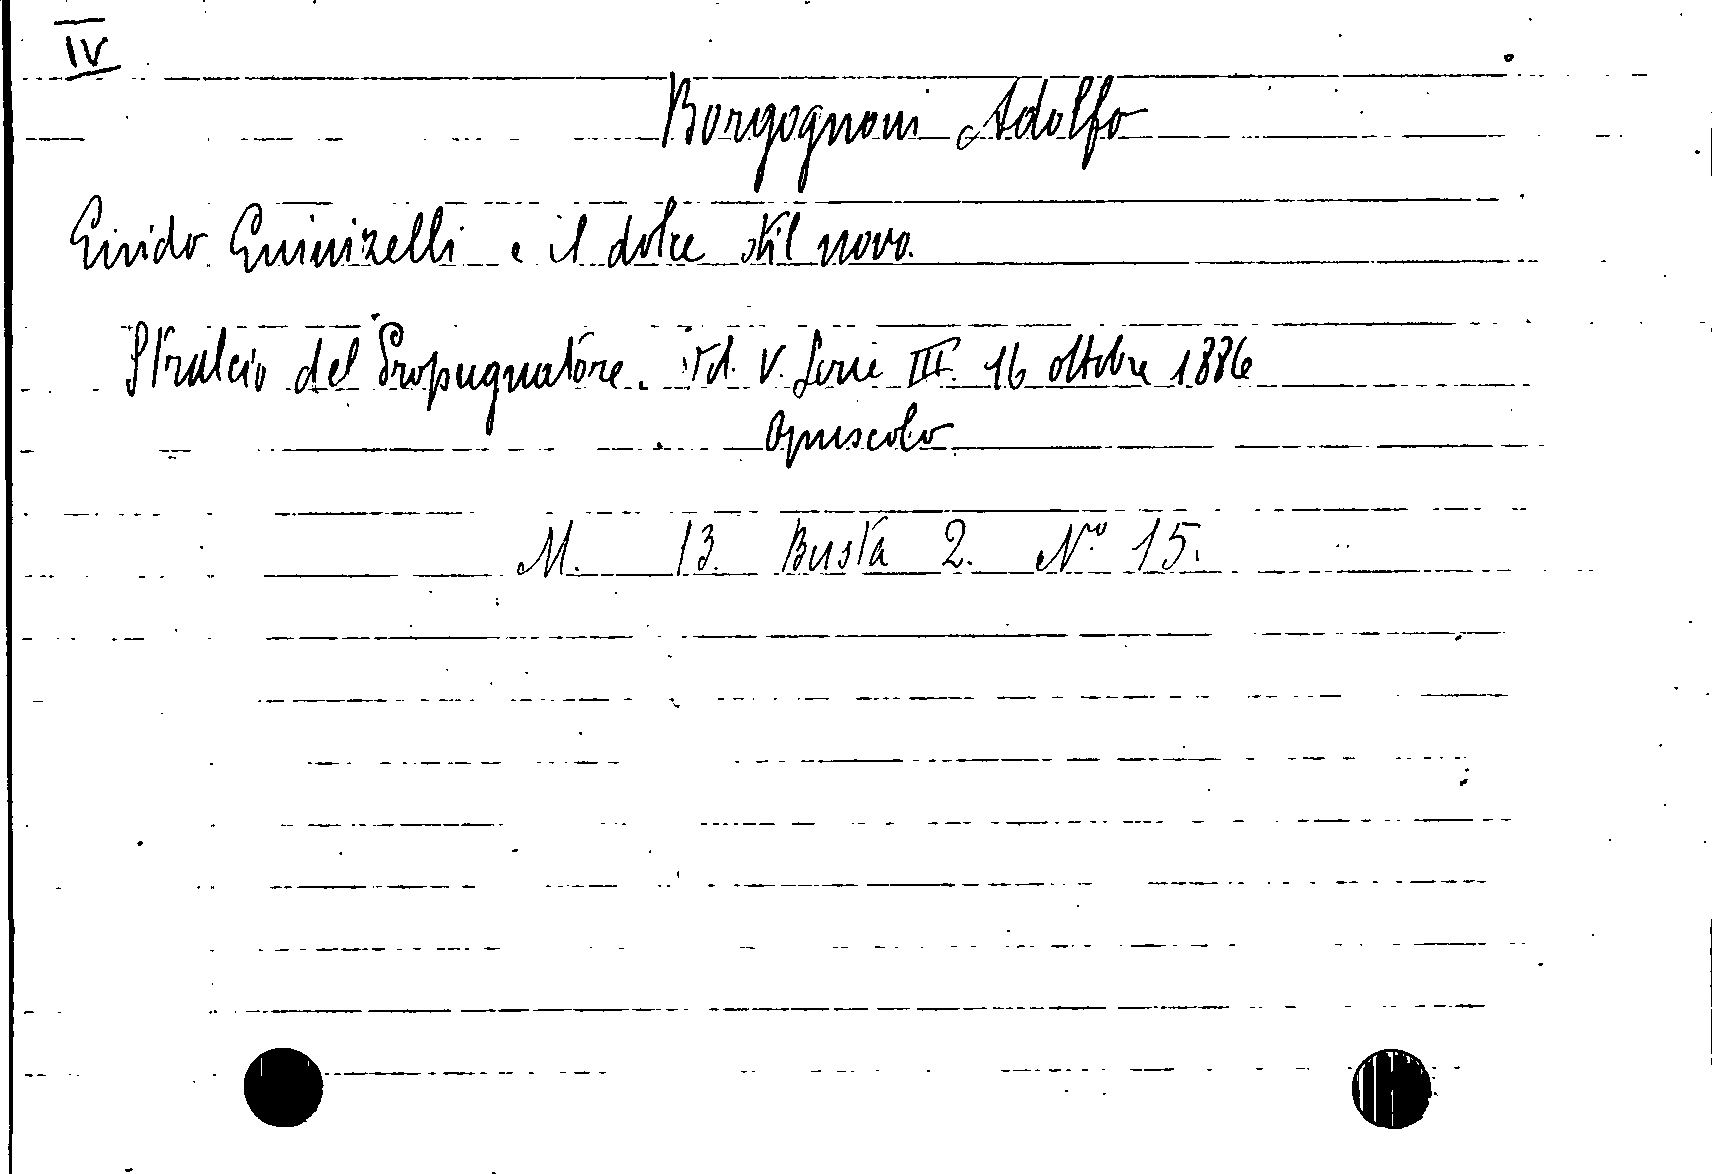 IV
Borgognoni Adolfo
Guido Guinizelli e il dolce stil novo.
Stralcio del Propugnatore. Vol. V. Serie III. 16 ottobre 1886
Opuscolo
M. 13. Busta 2. No. 15.